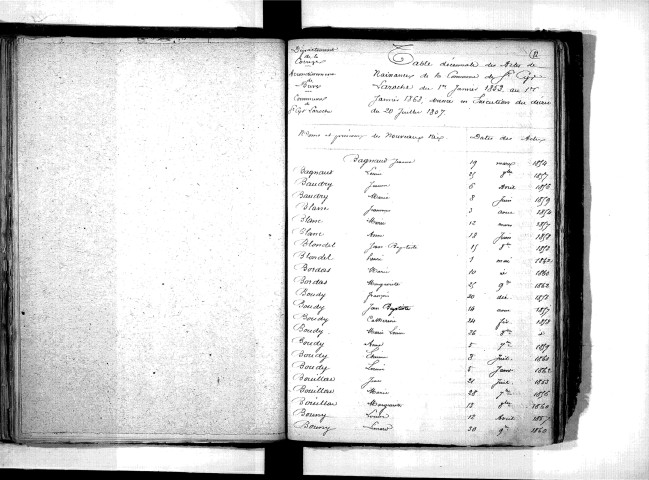 Département
de la
Corrèze
Arrondissement
de
Brive
Commune
de
St Cyr Laroche
Table décennale des Actes de
Naissances de la Commune de St Cyr
Laroche du 1er Janvier 1853 au 1er
Janvier 1863, dressée en Exécution du décret
du 20 Juillet 1807.
Noms et prénoms des Nouveaux Nés Dates des Actes
Bagnaud Jeanne 19 mars 1854
Bagnaud 25 8bre 1857
Baudry 6 Avril 1856
Baudry Marie 8 Juin 1859
Blanc 3 1854
Blanc Marie 12 mars 1857
Blanc 12 Juin 1858
Blondel Jean Baptiste 15 1853
Blondel 1 mai 1862
Bordas Marie 10 id 1860
Bordas Marguerite 25 9bre 1862
Boudy françois 20 déc 1853
Boudy Jean Baptiste 14 1857
Boudy Catherine 24 1858
Boudy Marie 26 8bre id
Boudy 5 7bre 1859
Boudy Etienne 8 Juil. 1860
Boudy 5 Janv 1862
Bouillon Jean 21 Juil. 1853
Bouillon Marie 28 7bre 1856
Bouillon Marguerite 13 8bre 1860
Bouny 12 Avril 1857
Bouny Léonard 30 9bre 1860